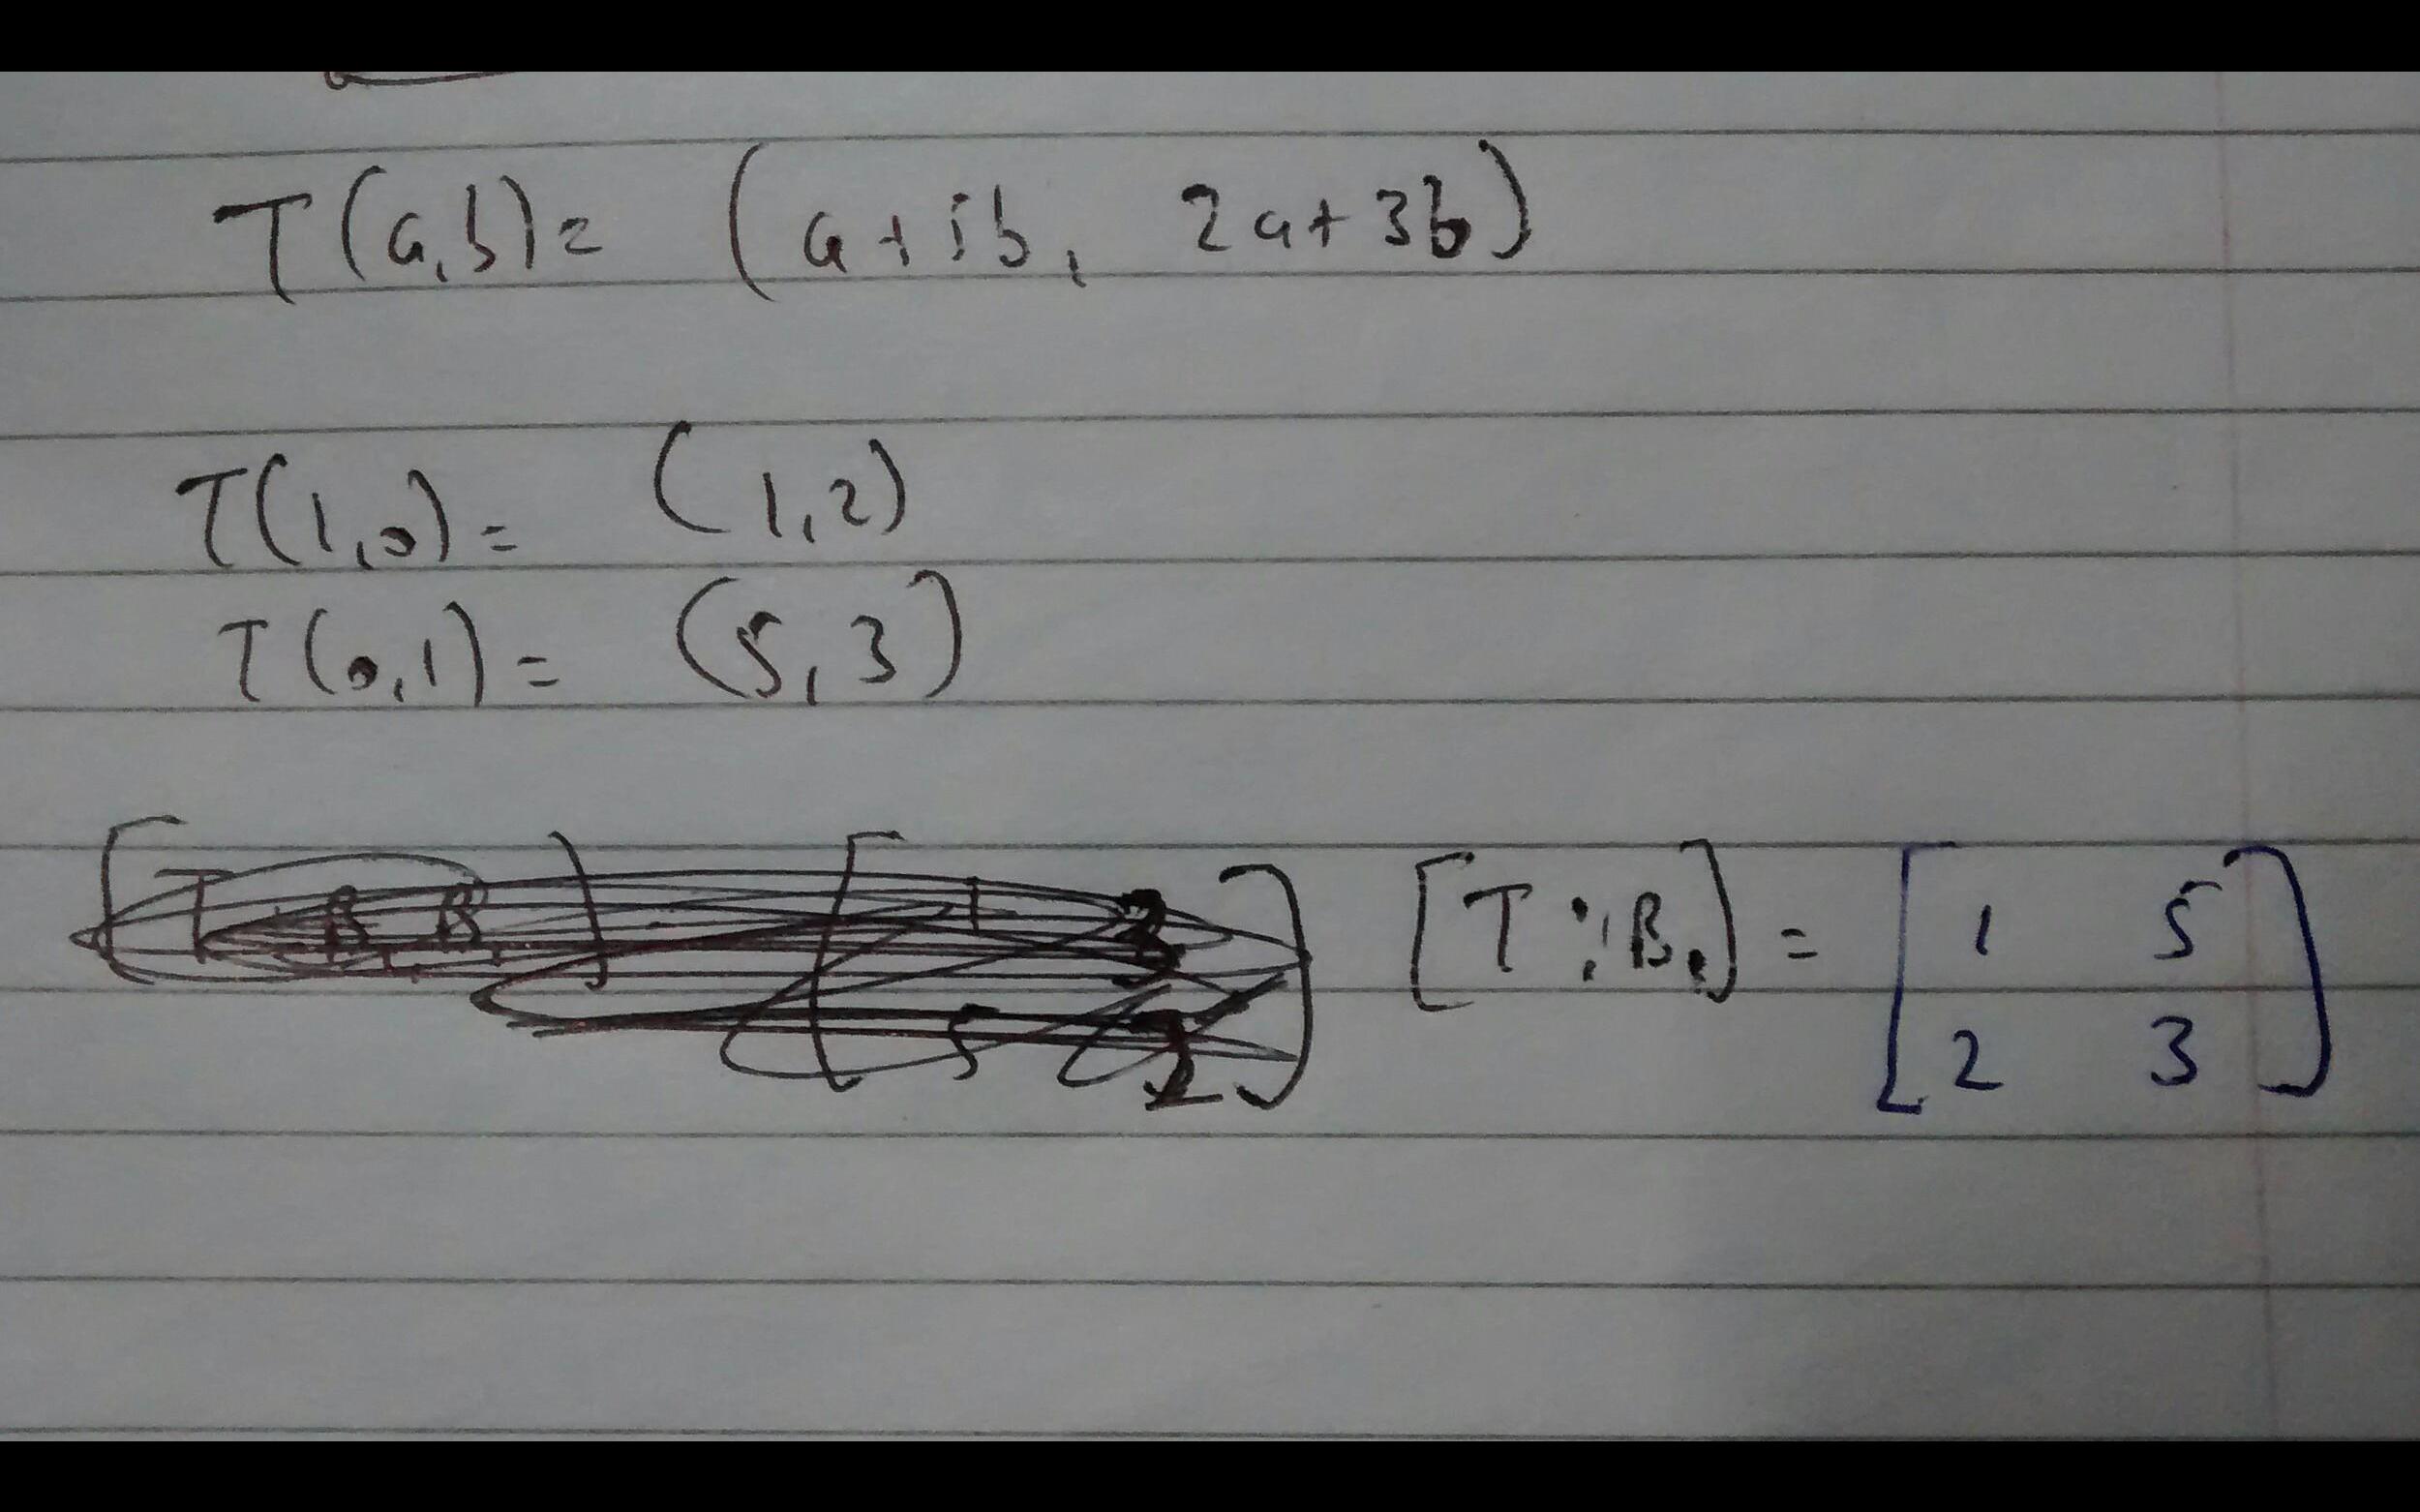 T(a,b)= (a+5b, 2a+3b)
T(1,0)= (1,2)
T(0,1)= (5,3)
[T:B₁]= [1 5
2 3]